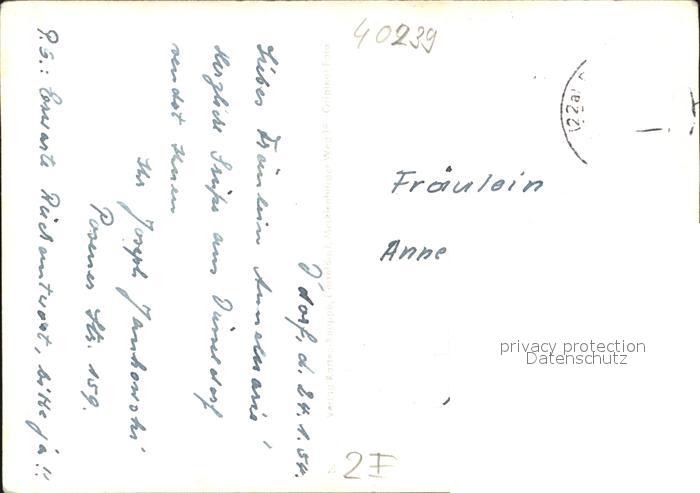 D'dorf, d. 24.1.54.
Liebes Fräulein Annemarie!
Herzliche Grüße aus Düsseldorf
sendet Ihnen
Ihr Joseph Jankowski
Posener Str. 159.
P.S.: Erwarte Rückantwort, bitte ja!!
40239
Fräulein
Anne
privacy protection
Datenschutz
2 F